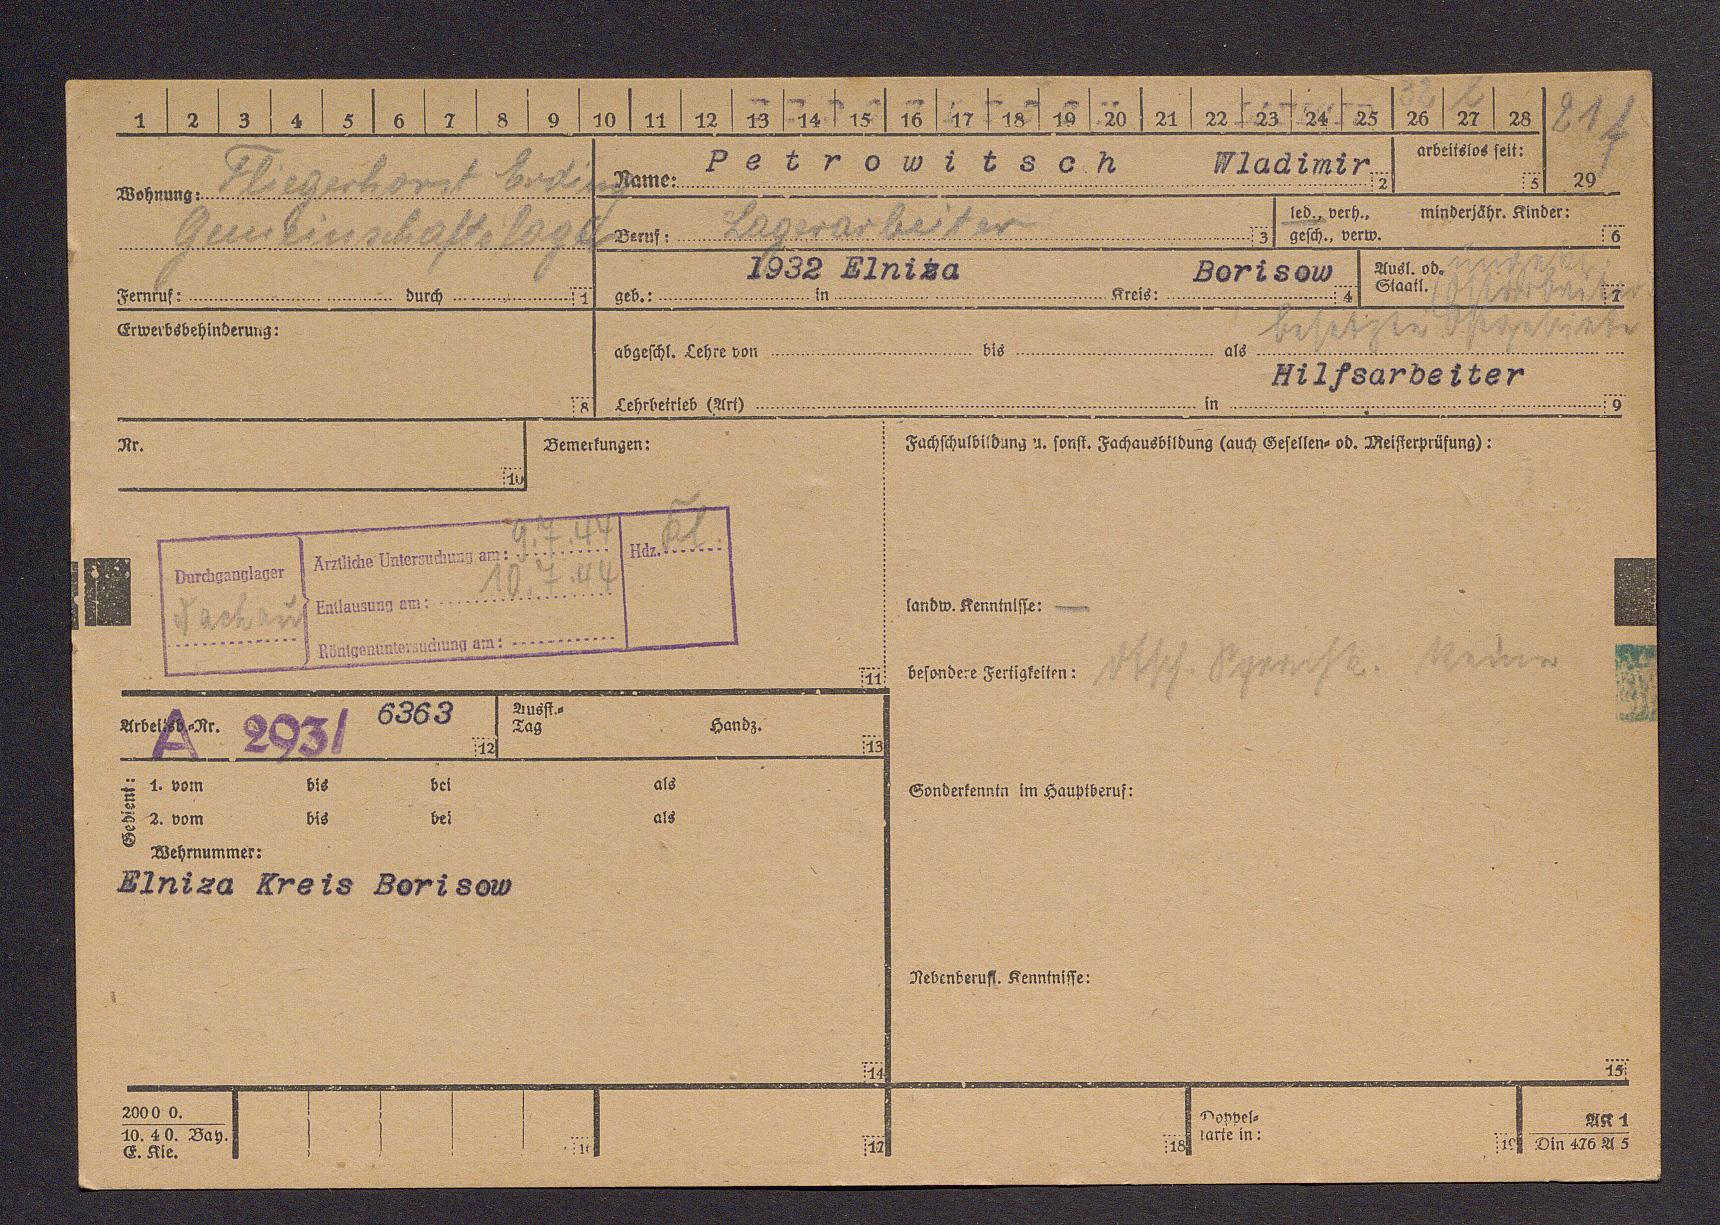 1 2 3 4 5 6 7 8 9 10 11 12 13 14 15 16 17 18 19 20 21 22 23 24 25 26 27 28
29
Wohnung: Fliegerhorst Erding
Gemeinschaftslager
Fernruf: durch 1
Name: Petrowitsch Wladimir 2
arbeitslos seit: 5
Beruf: Lagerarbeiter 3
led., verh., minderjähr. Kinder:
gesch., verw. 6
1932 Elniza Borisow
geb.: in Kreis: 4
Ausl. od.
Staatl. Ostarbeiter 7
besetzte Ostgebiete
Erwerbsbehinderung: 8
abgeschl. Lehre von bis als
Hilfsarbeiter
Lehrbetrieb (Art) in 9
Nr. 10
Bemerkungen:
Durchganglager
Dachau
Ärztliche Untersuchung am: 9.7.44
Entlausung am: 10.7.44
Röntgenuntersuchung am:
Hdz.
11
Fachschulbildung u. sonst. Fachausbildung (auch Gesellen- od. Meisterprüfung):
landw. Kenntnisse: —
besondere Fertigkeiten: dtsch. Sprachk. keine
Arbeitsb.-Nr. A 293/ 6363 12
Ausst.-
Tag Handz. 13
Gedient:
1. vom bis bei als
2. vom bis bei als
Wehrnummer:
Elniza Kreis Borisow
14
Sonderkenntn im Hauptberuf:
Nebenberufl. Kenntnisse:
15
2000 0.
10. 40. Bay.
E. Kle.
16 17 18
Doppel-
karte in: 19
AK 1
Din 476 A 5